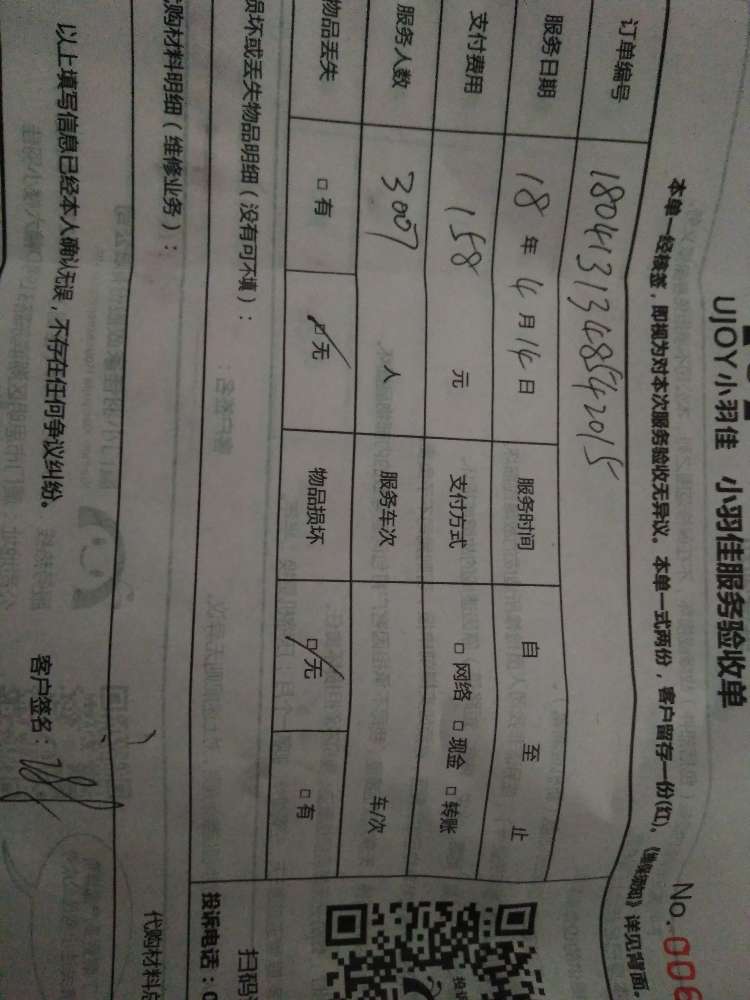 UJOY小羽佳 小羽佳服务验收单
No. 006
本单一经核签，即视为对本次服务验收无异议。本单一式两份，客户留存一份(红)。《维保须知》详见背面。
订单编号 1804131348542015
服务日期 18年4月14日 服务时间 自 至 止
支付费用 158 元 支付方式 □网络 □现金 □转账
服务人数 3007 人 服务车次 车/次
物品丢失 □有 □无 物品损坏 □无 □有
损坏或丢失物品明细（没有可不填）：
扫码
投诉电话：0
代购材料明细（维修业务）：
代购材料总
以上填写信息已经本人确认无误，不存在任何争议纠纷。 客户签名：